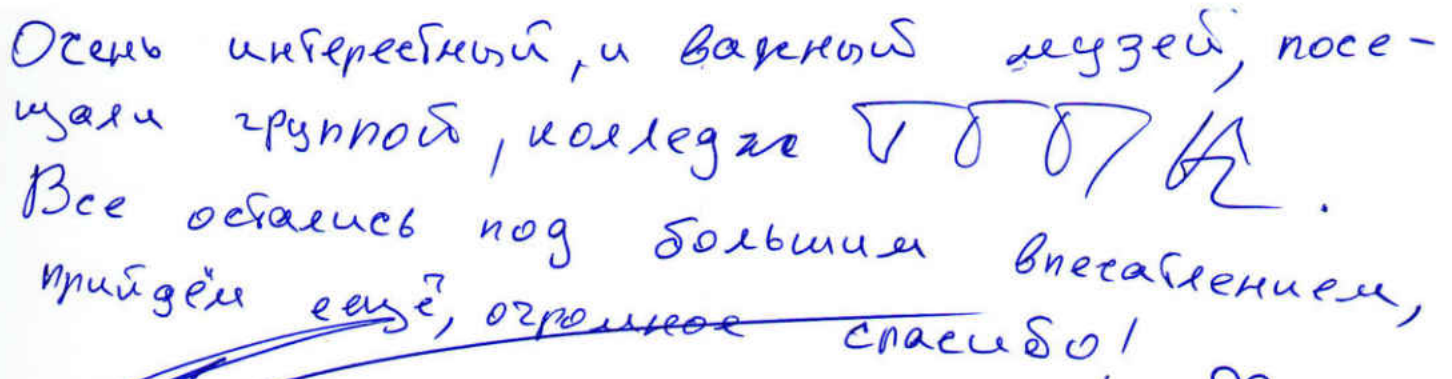 Очень интерестный, и важный музей, посе-
щали группой, колледж
Все остались под большим впечатлением,
прийдём ещё, огромное спасибо!